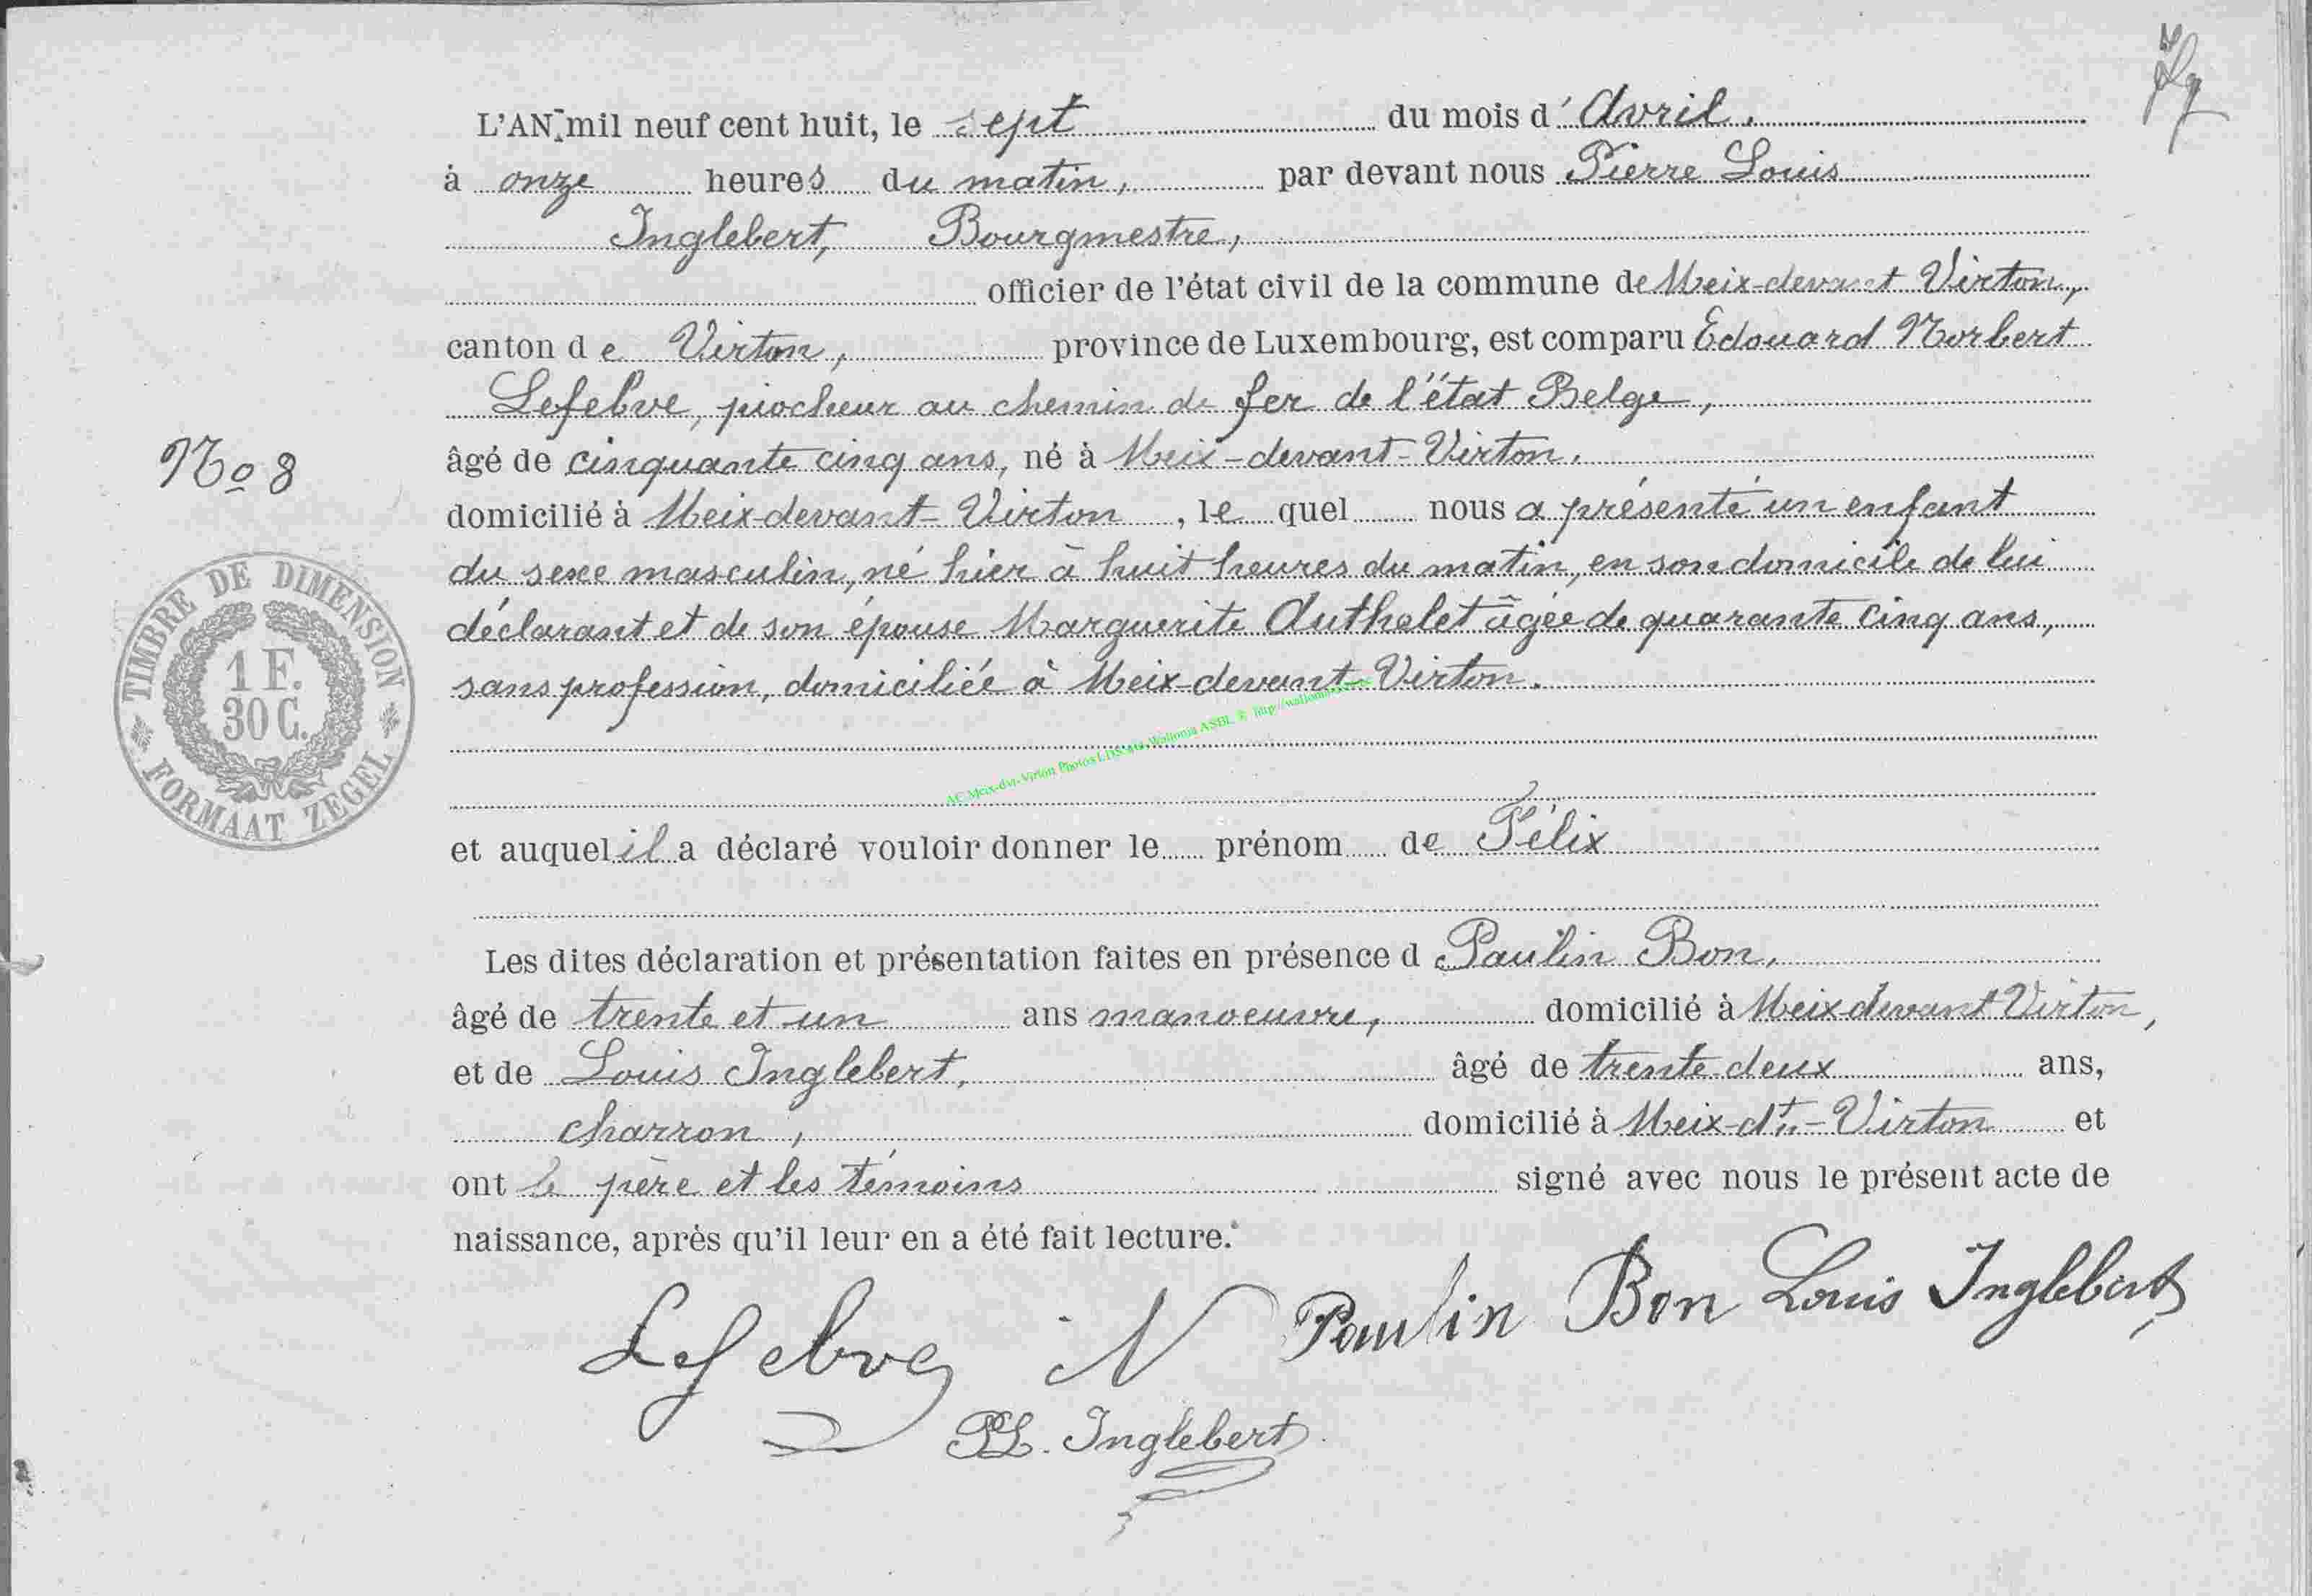 L'AN mil neuf cent huit, le sept du mois d'Avril.
à onze heures du matin, par devant nous Pierre Louis
Inglebert, Bourgmestre,
officier de l'état civil de la commune de Meix-devant Virton,
canton de Virton, province de Luxembourg, est comparu Edouard Norbert
Lefebve, piocheur au chemin de fer de l'état Belge,
âgé de cinquante cinq ans, né à Meix-devant-Virton.
No 8
domicilié à Meix-devant-Virton, lequel nous a présenté un enfant
du sexe masculin, né hier à huit heures du matin, en son domicile de lui
déclarant et de son épouse Marguerite Authelet âgée de quarante cinq ans,
sans profession, domiciliée à Meix-devant-Virton.
TIMBRE DE DIMENSION
1 F.
30 C.
FORMAAT ZEGEL
AC Meix-dvt-Virton Photos LDS ASBL © http://
et auquel il a déclaré vouloir donner le prénom de Félix
Les dites déclaration et présentation faites en présence d Paulin Bon,
âgé de trente et un ans manoeuvre, domicilié à Meix devant Virton,
et de Louis Inglebert, âgé de trente deux ans,
charron, domicilié à Meix-dt-Virton et
ont le père et les témoins signé avec nous le présent acte de
naissance, après qu'il leur en a été fait lecture.
Lefebve N Paulin Bon Louis Inglebert
PL. Inglebert